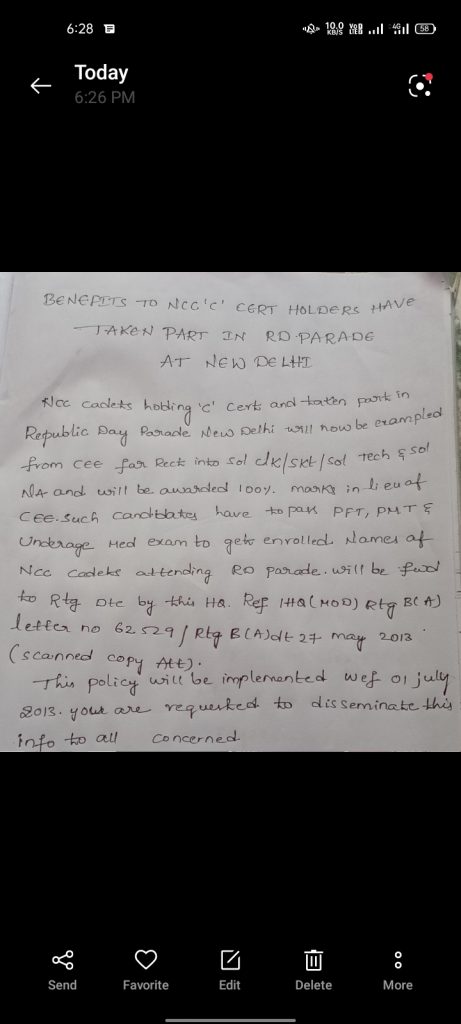 6:28
10.0 KB/S
4G
58
Today
6:26 PM
BENEFITS TO NCC 'C' CERT HOLDERS HAVE
TAKEN PART IN RD.PARADE
AT NEW DELHI
Ncc cadets holding 'c' certs and taken part in
Republic Day Parade New Delhi will now be exampled
from cee for Rect into sol clk/skt/sol tech & sol
NA and will be awarded 100%. marks in lieu of
CEE. Such candidates have to pass PFT, PMT &
Underage Med exam to gets enrolled. Names of
Ncc cadets attending RD parade. will be fwd
to Rtg Dte by this HQ. Ref IHQ (MOD) Rtg B(A)
letter no 62529/Rtg B(A)dt 27 may 2013
(scanned copy Att).
This policy will be implemented wef 01 july
2013. your are requested to disseminate this
info to all concerned
Send
Favorite
Edit
Delete
More